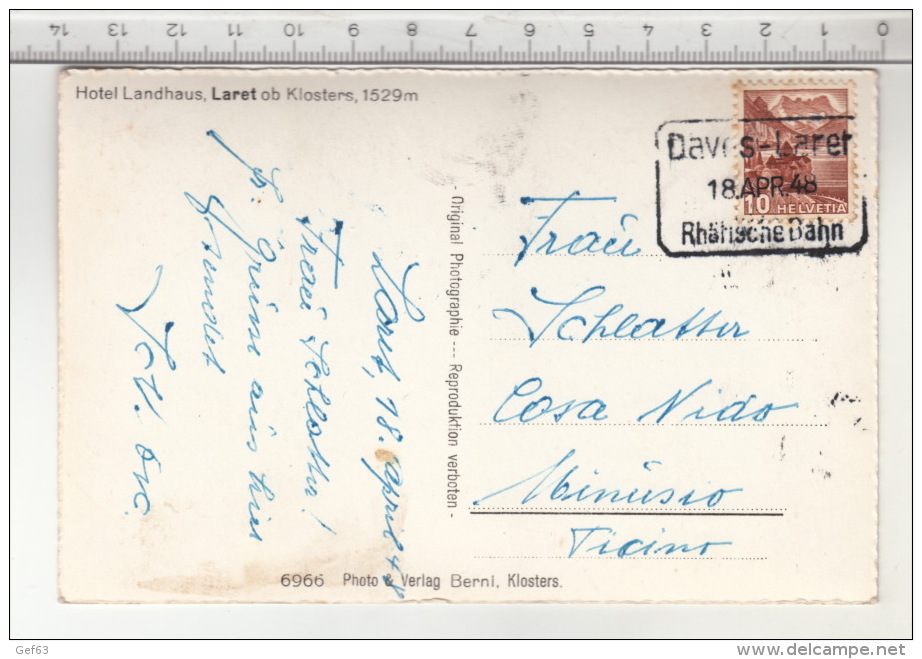 14 13 12 11 10 9 8 7 6 5 4 3 2 1 0
Hotel Landhaus, Laret ob Klosters, 1529m
Davos-Laret
18.APR.48
Rhätische Bahn
10 HELVETIA
Laret, 18. April 48
Frau Schlatter!
Grüsse aus hier
- Original Photographie --- Reproduktion verboten -
Frau
Schlatter
Casa Nido
Minusio
Ticino
6966 Photo & Verlag Berni, Klosters.
Gef63
delcampe.net